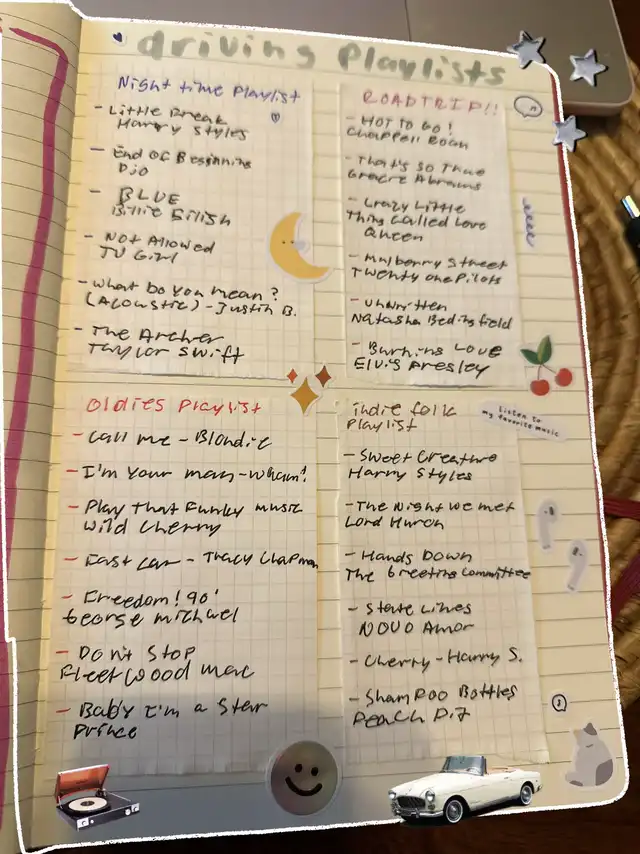 driving playlists
Night time playlist
- Little Freak
Harry Styles
- End Of Beginning
DJO
- BLUE
Billie Eilish
- Not Allowed
TV Girl
- What Do You Mean?
(Acoustic) - Justin B.
- The Archer
Taylor Swift
ROADTRIP!!
- HOT TO GO!
Chappell Roan
- That's So True
Gracie Abrams
- Crazy Little
Thing Called Love
Queen
- Mulberry Street
Twenty one Pilots
- Unwritten
Natasha Bedingfield
- Burning Love
Elvis Presley
Oldies Playlist
- Call me - Blondie
- I'm Your man - Wham!
- Play That Funky music
Wild Cherry
- Fast Car - Tracy Chapman
- Freedom! 90'
George michael
- Don't Stop
Fleetwood mac
- Baby I'm a Star
Prince
indie folk
Playlist
- Sweet Creature
Harry Styles
- The Night We met
Lord Huron
- Hands Down
The Greeting Committee
- State Lines
NOVO Amor
- Cherry - Harry S.
- Shampoo Bottles
Peach Pit
Listen to
my favorite music